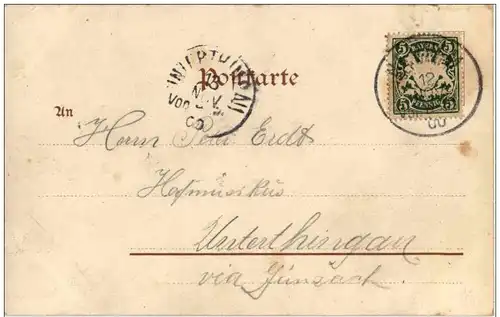 UNTERTHINGAU
Postkarte
BAYERN
5 5
12
PFENNIG
Vor
00
00
An
Herrn Erdt
Hofmusikus
Unterthingau
via Günzach